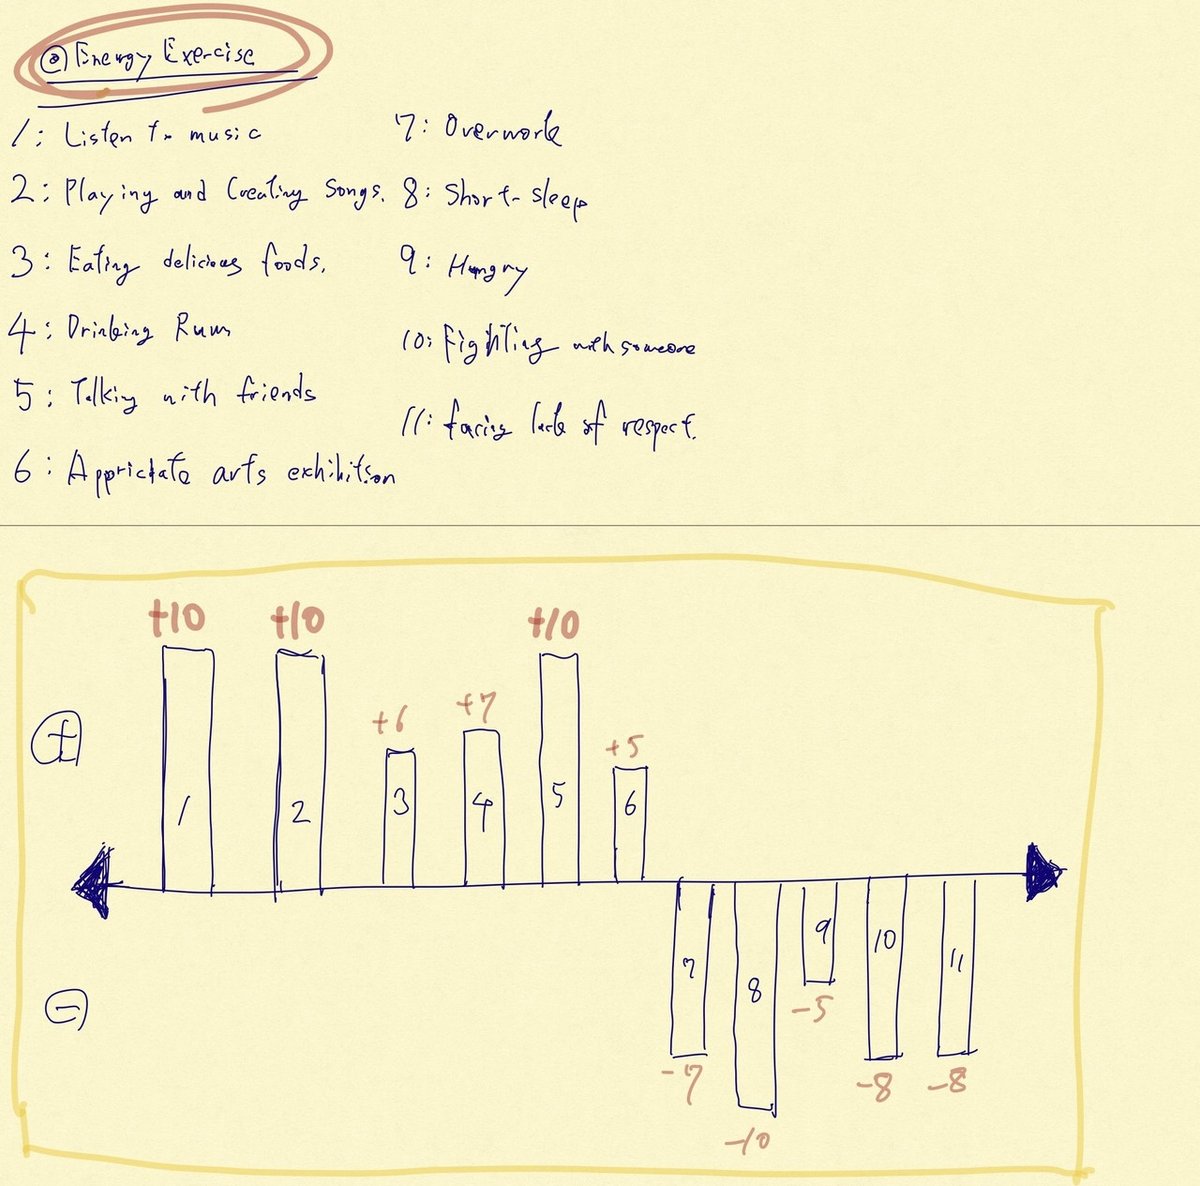 @ Energy Exercise
1: Listen to music
2: Playing and Creating Songs.
3: Eating delicious foods.
4: Drinking Rum
5: Talking with friends
6: Apprictate arts exhibition
7: Overwork
8: Short-sleep
9: Hungry
10: Fighting with someone
11: facing lack of respect.
+10 +10 +6 +7 +10 +5
+
1 2 3 4 5 6
7 8 9 10 11
-
-7 -10 -5 -8 -8